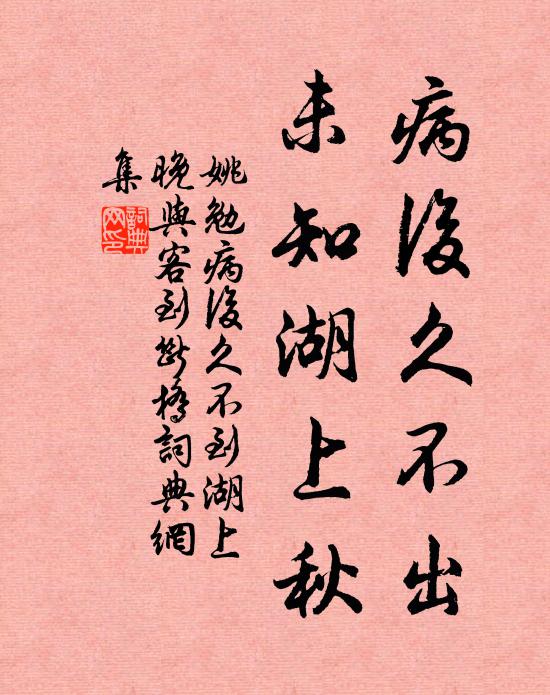 病後久不出
未知湖上秋
姚勉病後久不到湖上
晚與客到斷橋詞典網
集
詞典
网印